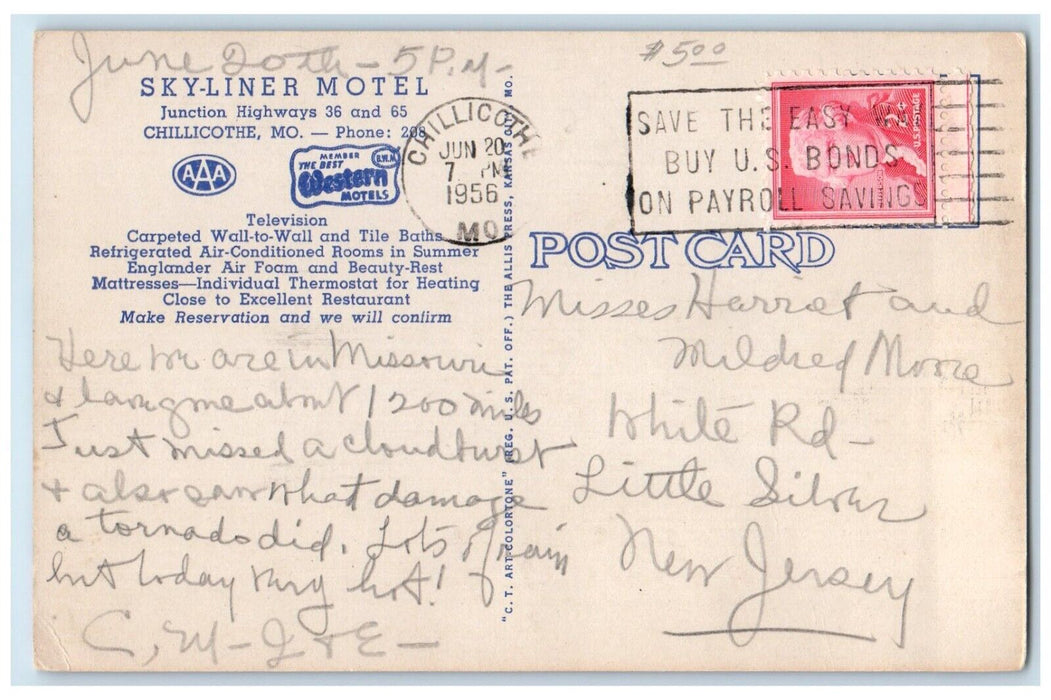 June 20th - 5 P.M -
SKY-LINER MOTEL
Junction Highways 36 and 65
CHILLICOTHE, MO. — Phone: 208
AAA
MEMBER
THE BEST B.W.M.
Western
MOTELS
Television
Carpeted Wall-to-Wall and Tile Baths
Refrigerated Air-Conditioned Rooms in Summer
Englander Air Foam and Beauty-Rest
Mattresses—Individual Thermostat for Heating
Close to Excellent Restaurant
Make Reservation and we will confirm
Here we are in Missouri
& have gone about 1200 miles
Just missed a cloudburst
+ also saw what damage
a tornado did. Lots of rain
but today very hot!
C, M - J + E -
"C. T. ART-COLORTONE" (REG. U. S. PAT. OFF.) THE ALLIS PRESS, KANSAS CITY, MO.
CHILLICOTHE
JUN 20
7 PM
1956
MO
$5.00
SAVE THE EASY WAY
BUY U.S. BONDS
ON PAYROLL SAVINGS
2¢
U.S. POSTAGE
POST CARD
Misses Harriet and
Mildred Moore
White Rd -
Little Silver
New Jersey